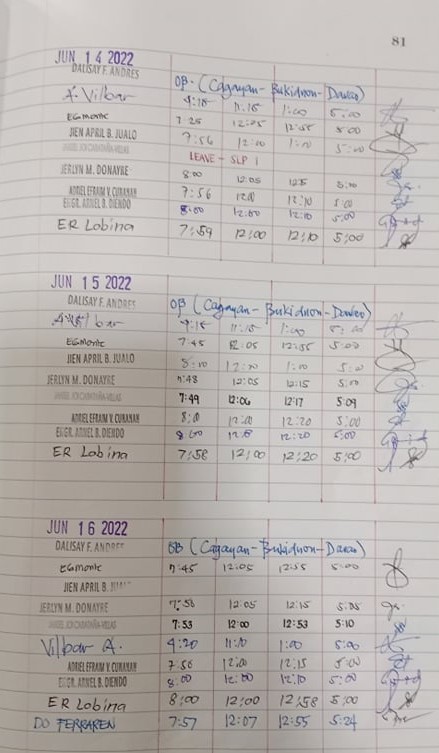 81
JUN 14 2022
DALISAY F. ANDRES OB- (Cagayan- Bukidnon- Davao)
A. Vilbar 11:15 1:00 5:00
EGMONTE 7:25 12:05 12:55 5:00
JIEN APRIL B. JUALO 7:56 12:10 1:10 5:00
LEAVE - SLP 1
JERLYN M. DONAYRE 8:00 12:05 5:00
ADRIEL EFRAIM V. CUBANAN 7:56 12:00 12:10 5:00
ENGR. ARNEL B. DIENDO 8:00 12:00 12:10 5:00
ER Lobina 7:59 12:00 12:10 5:00
JUN 15 2022
DALISAY F. ANDRES OB (Cagayan- Bukidnon- Davao)
11:15 1:00
EGMONTE 7:45 12:05 12:55 5:00
JIEN APRIL B. JUALO 8:10 12:10 1:10
JERLYN M. DONAYRE 7:48 12:05 12:15 5:00
7:49 12:06 12:17 5:09
ADRIEL EFRAIM V. CUBANAN 8:00 12:00 12:20 5:00
ENGR. ARNEL B. DIENDO 8:00 12:20 5:00
ER Lobina 7:58 12:00 12:20 5:00
JUN 16 2022
DALISAY F. ANDRES OB (Cagayan- Bukidnon- Davao)
EGMONTE 7:45 12:05 12:55 5:00
JIEN APRIL B.
JERLYN M. DONAYRE 7:58 12:05 12:15 5:05
7:53 12:00 12:53 5:10
Vilbar A. 1:00 5:00
ADRIEL EFRAIM V. CUBANAN 7:56 12:00 12:15 5:00
ENGR. ARNEL B. DIENDO 8:00 12:00 12:10 5:00
ER Lobina 8:00 12:00 12:58 5:00
DO FERRAREN 7:57 12:07 12:55 5:24